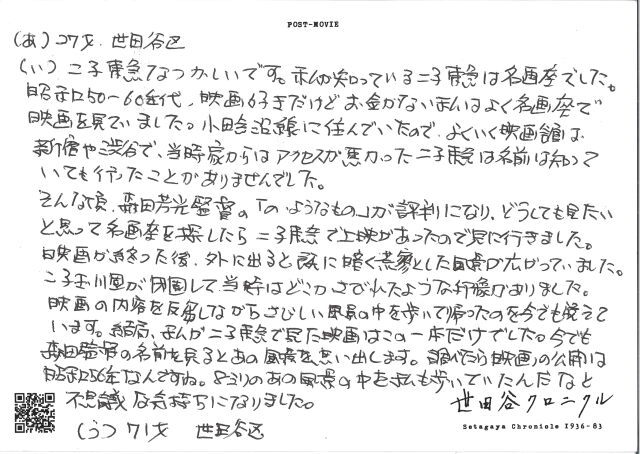 POST-MOVIE
(あ) コワオ. 世田谷区
(い) 二子東急なつかしいです。私が知っている二子東急は名画座でした。
昭和50〜60年代、映画好きだけどお金がない私はよく名画座で
映画を見ていました。小田急沿線に住んでいたので、よくいく映画館は、
新宿や渋谷で、当時家からはアクセスが悪かった二子東急は名前は知って
いても行ったことがありませんでした。
そんな頃、森田芳光監督の「の・ようなもの」が評判になり、どうしても見たい
と思って名画座を探したら二子東急で上映があったので見に行きました。
映画が終った後、外に出ると既に暗く荒寥とした風景が広がっていました。
二子玉川園が閉園して当時はどこかさびれたような印象がありました。
映画の内容を反芻しながらさびしい風景の中を歩いて帰ったのを今でも覚えて
います。結局、私が二子東急で見た映画はこの一本だけでした。今でも
森田監督の名前を見るとあの風景を思い出します。調べたら映画の公開は
昭和56年なんですね。8ミリのあの風景の中を私も歩いていたんだなと
不思議な気持ちになりました。
世田谷クロニクル
Setagaya Chronicle 1936-83
(う) 71才 世田谷区